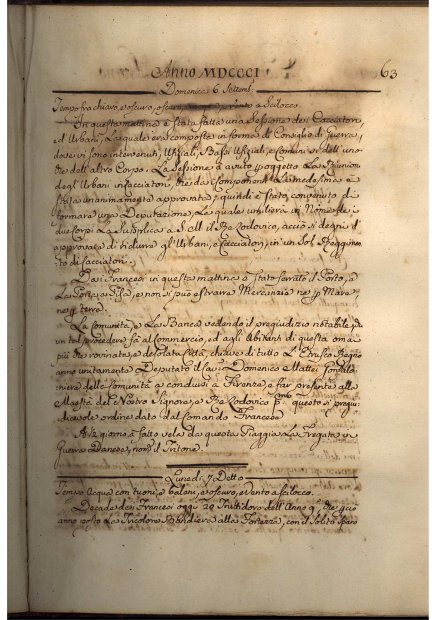 Anno MDCCCI
63
Domenica 6 Settem.
Tempo fra chiaro, e oscuro, oscuro, e vento a Scilocco
In questa mattina è stata fatta una Sessione dei Cacciatori,
ed Urbani, la quale era composta in forma di Consiglio di Guerra,
dove vi sono intervenuti, Ufiziali, Bassi Ufiziali, e Comuni sì dell'uno
che dell'altro Corpo. La Sessione à avuto p oggetto La Riunione
degl'Urbani in Cacciatori, che dai Componenti La medesima è
stata unanimamente approvata; quindi è stato convenuto di
formare una Deputazione, La quale umilierà in Nome dei
due Corpi La Supplica a S. M. il Rè Lodovico, acciò si degni d'
approvare di ridurre gl'Urbani, e Cacciatori, in un sol Reggimen-
to di Cacciatori.
Dai Francesi in questa mattina è stato serrato il Porto, e
La Porta a Pisa, e non si può estrarre Mercanzia ne p Mare
ne p terra.
La Comunità, e La Banca vedendo il pregiudizio notabile, che
un tal procedere fà al commercio, ed agli Abitanti di questa oma
più che rovinata, e desolata Città, chiave di tutto L'Etrusco Regno
anno unitamente Deputato il Domenico Mattei Gonfalo-
niere delle Comunità a condursi a Firenze, a far presente alla
Maestà del Nostro Signore, e Rè Lodovico P.mo questo sì pregiu-
dicevole ordine dato dal Comando Francese
A ½ giorno, à fatto vela da questa Piaggia La Fregata in
Guerra Danese, nom. il Tritone
Lunedì 7 Detto
Tempo Acqua con tuoni, e baleni, e oscuro, e vento a Scilocco.
Decade dei Francesi oggi 20 Fruttidoro dell'Anno 9, che
anno posto La Tricolore Bandiera alla Fortezza, con il solito sparo